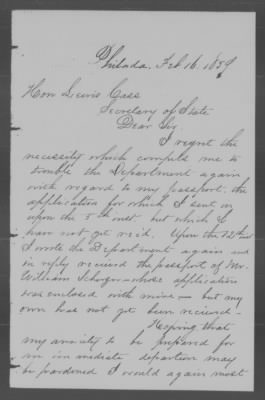 Philada. Feb 16. 1859
Hon Lewis Cass
Secretary of State
Dear Sir
I regret the
necessity which compels me to
trouble the Department again
with regard to my passport; the
application for which I sent on
upon the 5th inst. but which I
have not yet rec'd. Upon the 12th inst
I wrote the Department again and
in reply received the passport of Mr.
William — whose application
was enclosed with mine — but my
own has not yet been received.
Hoping that
my anxiety to be prepared for
an immediate departure may
be pardoned I would again most